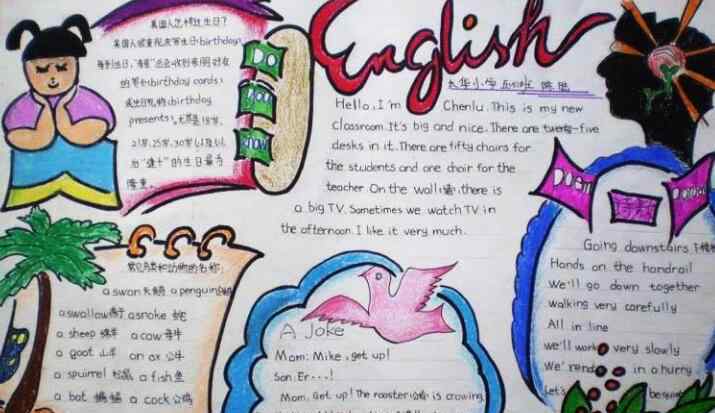 English
美国人怎样过生日?
美国人很重视过生日(birthday)
每到生日,
的
(birthday cards)
或生日礼物(birthday
presents),尤其是18岁,
21岁,25岁,30岁以及以
后"逢十"的生日最为
隆重。
DO
you
know
Hello, I'm Chenlu. This is my new
classroom. It's big and nice. There are twenty-five
desks in it. There are fifty chairs for
the students and one chair for the
teacher. On the wall墙, there is
a big TV. Sometimes we watch TV in
the afternoon. I like it very much.
常见鸟类和动物的名称:
a swan天鹅 a penguin企鹅
a swallow燕子 a snake 蛇
a sheep 绵羊 a cow 母牛
a goat 山羊 an ox 公牛
a squirrel 松鼠 a fish 鱼
a bat 蝙蝠 a cock 公鸡
A Joke
Mom: Mike, get up!
Son: Er---!
Mom: Get up! The rooster公鸡 is crowing.
Going downstairs 下楼梯
Hands on the handrail
We'll go down together
walking very carefully
All in line
we'll work very slowly
We're in a hurry
Let's